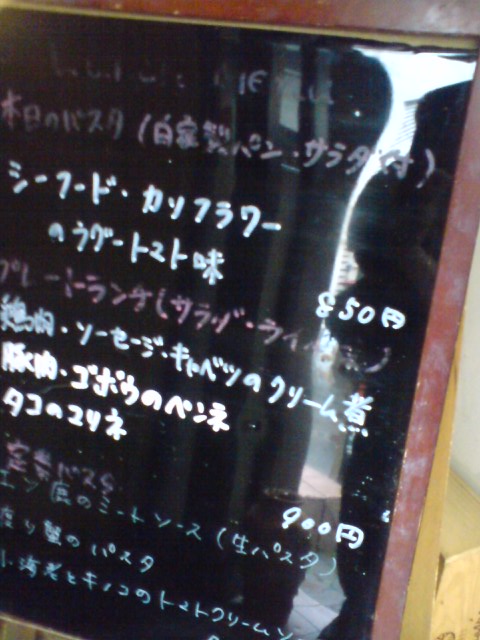 本日のパスタ (自家製パン・サラダ付)
シーフード・カリフラワー
のラグートマト味
850円
プレートランチ(サラダ・
鶏肉・ソーセージ・キャベツのクリーム煮
豚肉・ゴボウのペンネ
タコのマリネ
900円
定番パスタ
エゾ鹿のミートソース (生パスタ)
渡り蟹のパスタ
小海老とキノコのトマトクリームソ